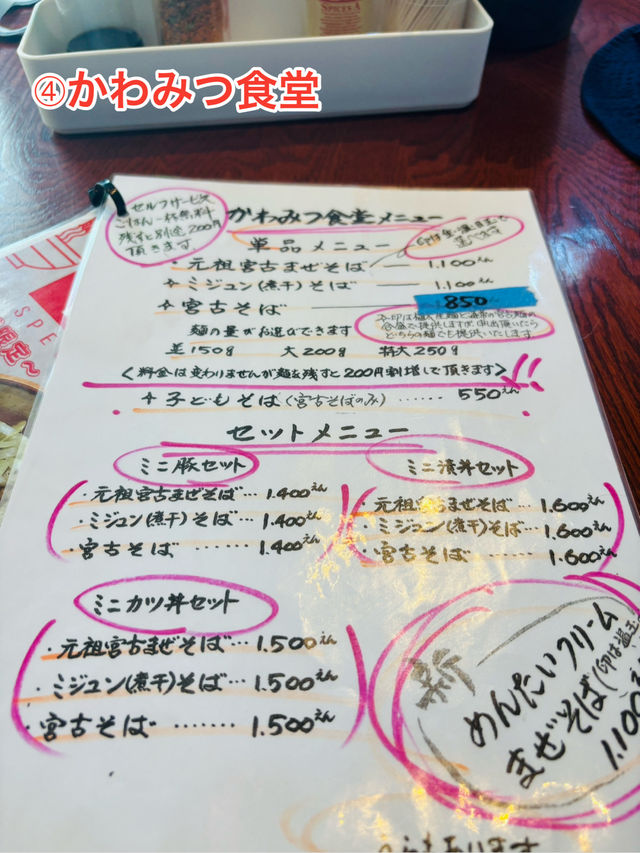 ④かわみつ食堂
SPICES-A
セルフサービス
ごはん一杯無料
残すと別途200円
頂きます
かわみつ食堂メニュー
単品メニュー
・元祖宮古まぜそば 1.100えん
ミジュン(煮干)そば 1.100えん
宮古そば 850
麺の量がお選びできます
並150g 大200g 特大250g
<料金は変わりませんが麺を残すと200円割増しで頂きます>!!
子どもそば(宮古そばのみ)……550えん
セットメニュー
ミニ豚セット
・元祖宮古まぜそば…1.400えん
・ミジュン(煮干)そば…1.400えん
・宮古そば……1.400えん
ミニ漬丼セット
・元祖宮古まぜそば…1.600えん
・ミジュン(煮干)そば…1.600えん
・宮古そば……1.600えん
ミニカツ丼セット
・元祖宮古まぜそば…1.500えん
・ミジュン(煮干)そば…1.500えん
・宮古そば……1.500えん
新
めんたいクリーム
まぜそば
1.100